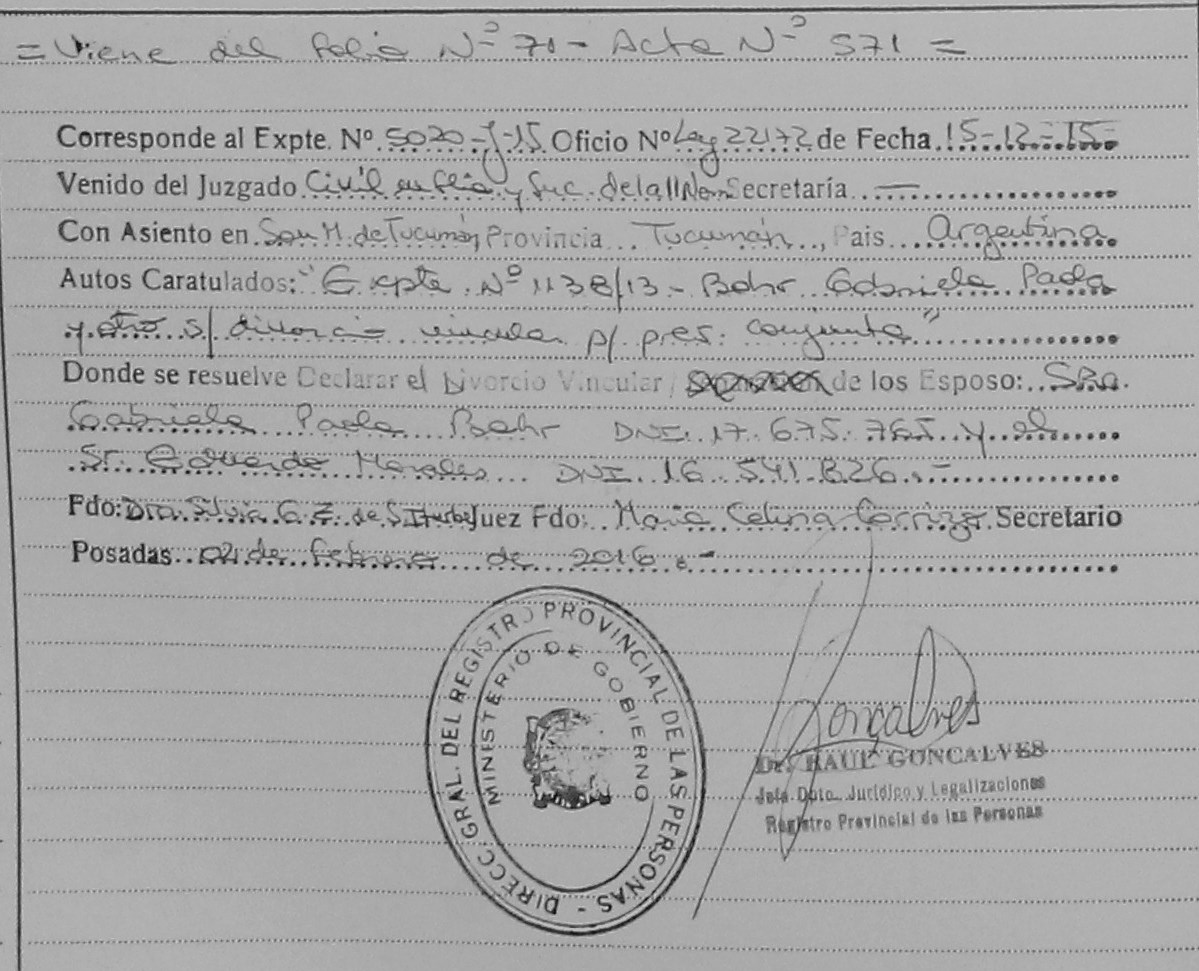 = Viene del folio Nº 71 - Acta Nº 571 =
Corresponde al Expte. Nº 5020-J-15 Oficio Nº Ley 22172 de Fecha 15-12-15-
Venido del Juzgado Civil en flia y Suc. de la II Nom Secretaría —
Con Asiento en San M. de Tucumán Provincia Tucumán, Pais Argentina
Autos Caratulados: "Expte. Nº 1138/13 - Bahr Gabriela Paola
y otro s/ divorcio vincular p/ pres. conjunta"
Donde se resuelve Declarar el Divorcio Vincular / de los Esposo: SRa.
Gabriela Paola Bahr DNI. 17.675.765 y el
Sr. Eduardo Morales DNI 16.541.826.-
Fdo: Dra. Silvia G. Z. de S. Iturbe Juez Fdo: María Celina Carrizo Secretario
Posadas 02 de febrero de 2016.-
DIRECC. GRAL. DEL REGISTRO PROVINCIAL DE LAS PERSONAS -
MINISTERIO DE GOBIERNO
Gonçalves
Dr. RAUL GONCALVES
Jefe Dpto. Jurídico y Legalizaciones
Registro Provincial de las Personas